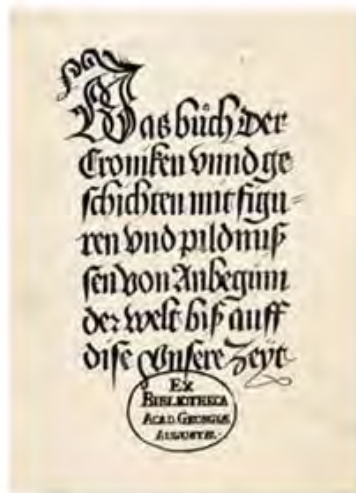 Das bůch Der
Croniken vnnd ge
schichten mit figu=
ren vnd pildnuß
sen von Anbeginn
der welt biß auff
dise vnsere Zeyt
EX
BIBLIOTHECA
ACAD. GEORGIÆ
AUGUSTÆ.